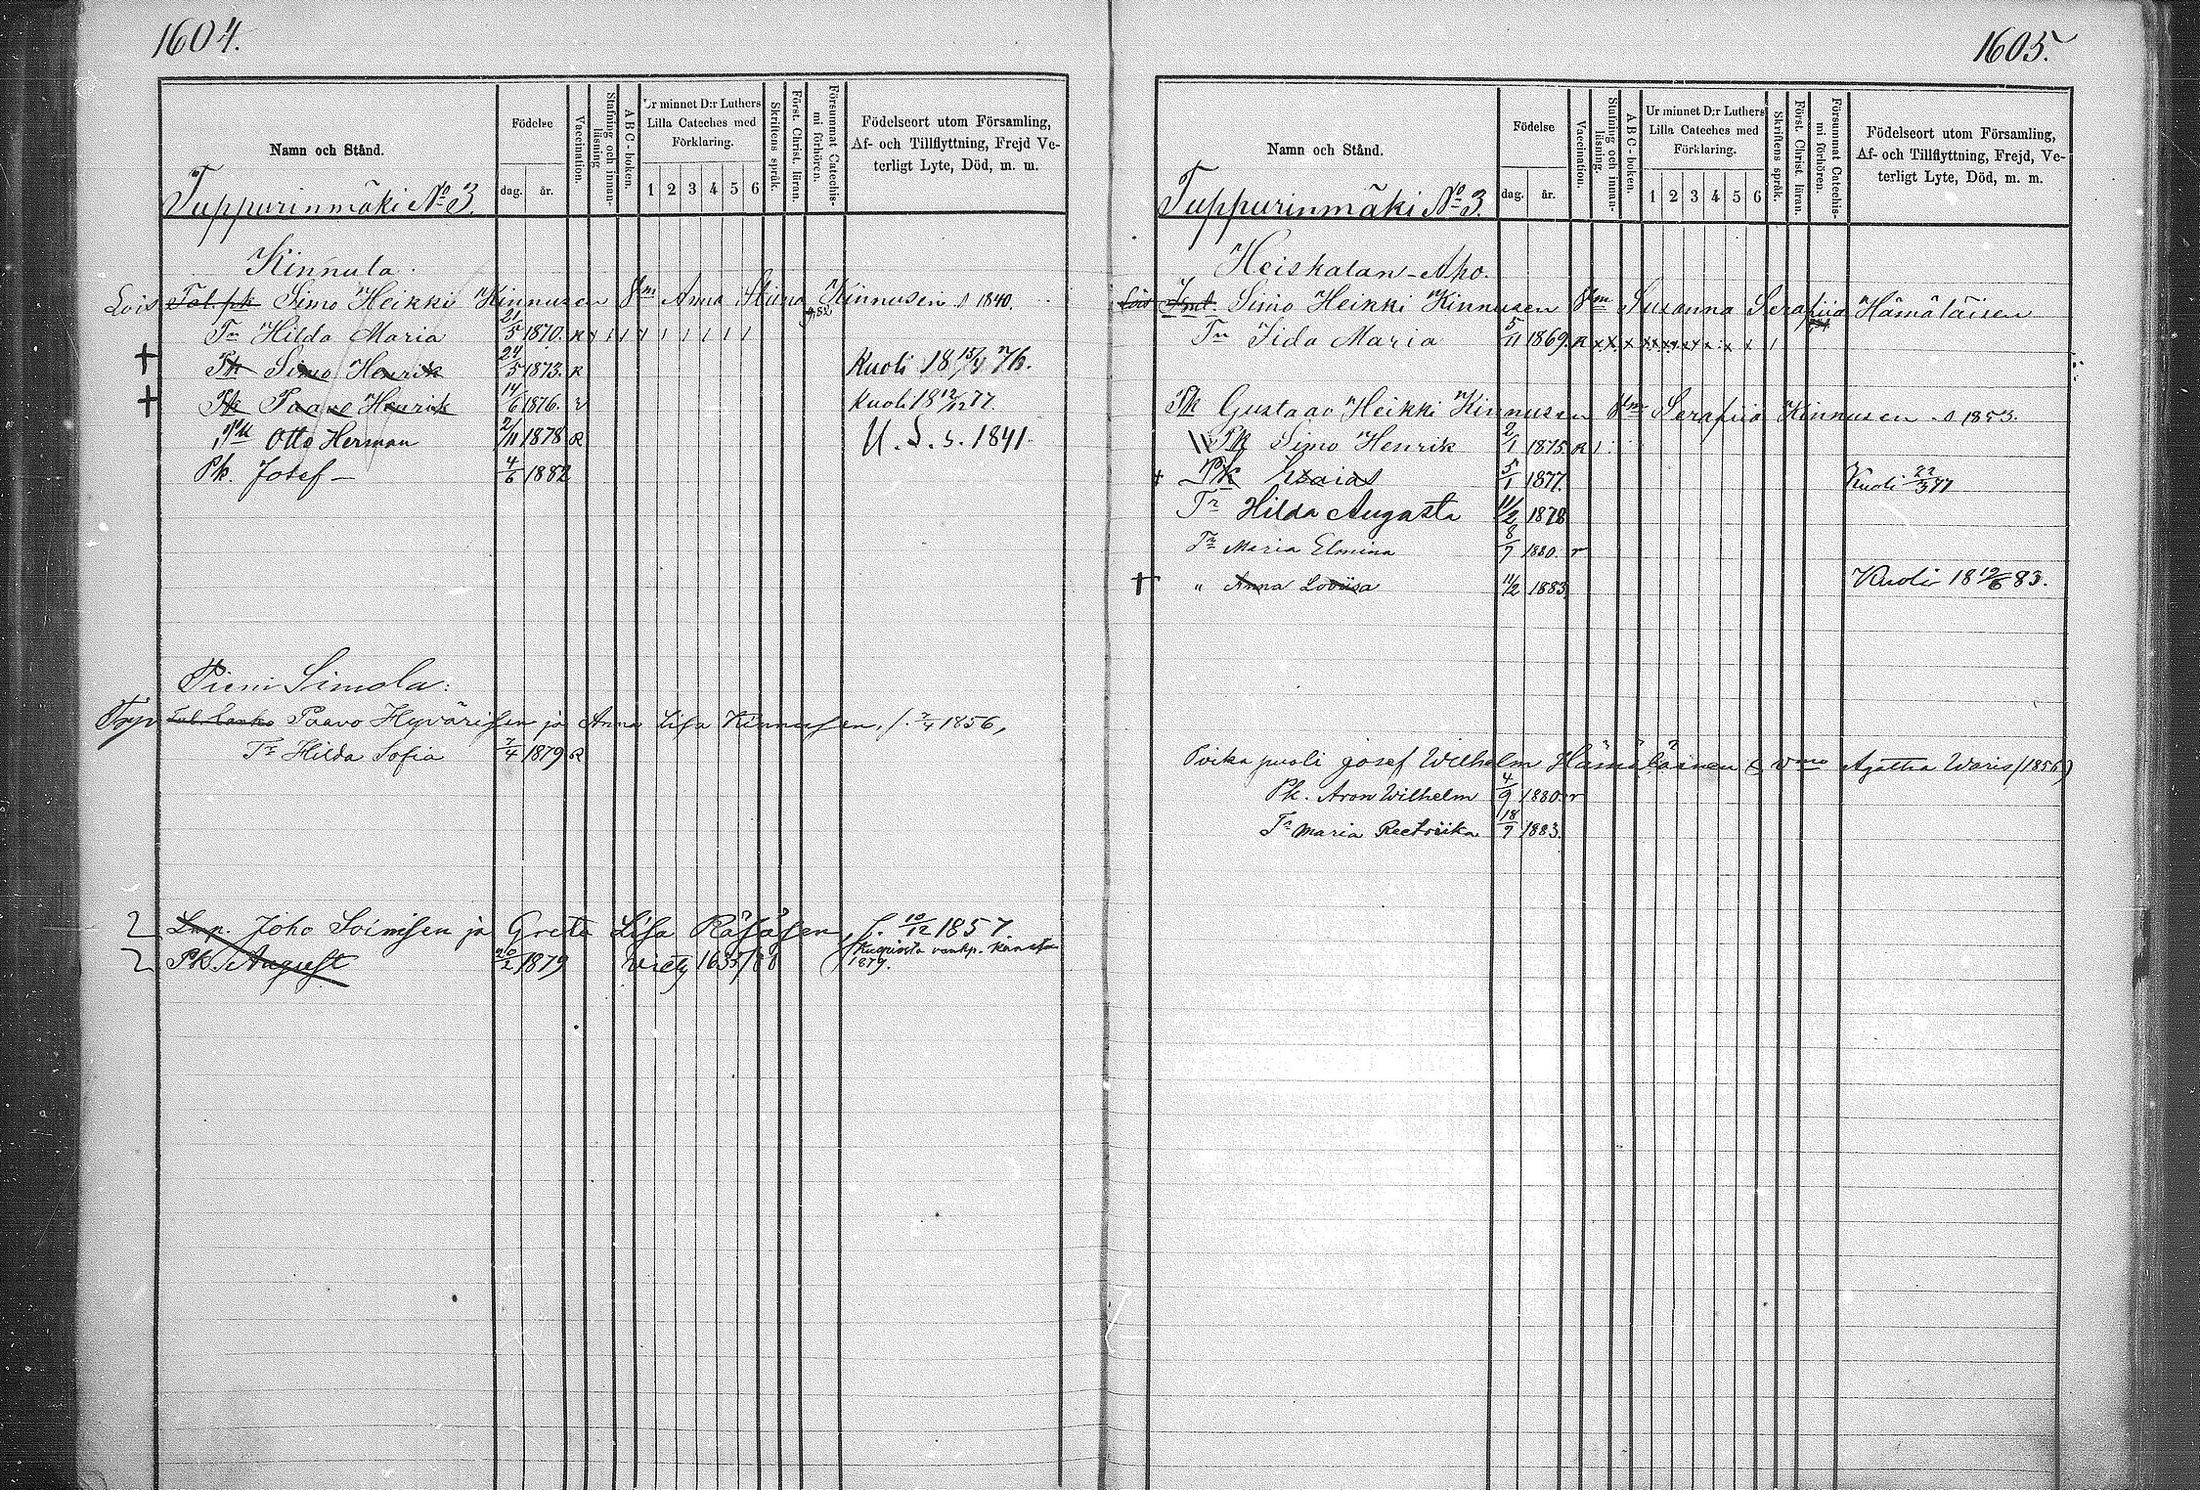 1604.
Namn och Stånd.
Födelse
dag. år.
Vaccination.
Stafning och innan-läsning
A B C - boken.
Ur minnet D:r Luthers
Lilla Cateches med
Förklaring.
1 2 3 4 5 6
Skriftens språk.
Först. Christ. läran.
Försummat Catechis-mi förhören.
Födelseort utom Församling,
Af- och Tillflyttning, Frejd Ve-
terligt Lyte, Död, m. m.
Tuppurinmäki No 3.
Kinnula.
Lois Tal. pk Simo Heikki Kinnusen Vm Anna Stiina Kinnusen s 1840.
Tr Hilda Maria 21/5 1870. R
Pk Simo Henrik 24/5 1873. R Kuoli 18 76.
Pk Paavo Henrik 14/6 1876. v Kuoli 18 12/12 77.
Pk Otto Herman 2/11 1878 R U. S. s. 1841
Pk. Josef 4/6 1882
Pieni Simola:
Paavo Hyvärisen ja Anna Lisa Kinnusen, s. 7/4 1856,
Tr Hilda Sofia 7/4 1879 R
Joho Soinisen ja Greta Lisa Räsäsen, s. 10/12 1857.
Pk. August 20/2 1879 1635/80 1879.
1605.
Namn och Stånd.
Födelse
dag. år.
Vaccination.
Stafning och innan-läsning.
A B C - boken.
Ur minnet D:r Luthers
Lilla Cateches med
Förklaring.
1 2 3 4 5 6
Skriftens språk.
Först. Christ. läran.
Försummat Catechis-mi förhören.
Födelseort utom Församling,
Af- och Tillflyttning, Frejd, Ve-
terligt Lyte, Död, m. m.
Tuppurinmäki No 3.
Heiskalan-Aho.
Lois Ind. Simo Heikki Kinnusen Vm Susanna Serafiia Hämäläisen
Tr Iida Maria 5/11 1869. R
Pk Gustaav Heikki Kinnusen Vm Serafiia Kinnusen s 1853.
Pk Simo Henrik 2/1 1875. R
Pk Esaias 5/1 1877. Kuoli 22/3 77
Tr Hilda Augasta 11/2 1878
Tr Maria Elmina 8/7 1880. r
" Anna Lovisa 11/2 1883 Kuoli 18 12/6 83.
Poika puoli Josef Wilhelm Hämäläinen & vmo Agatha Waris (1856)
Pk. Aron Wilhelm 4/9 1880 r
Tr Maria Reetriika 18/7 1883.